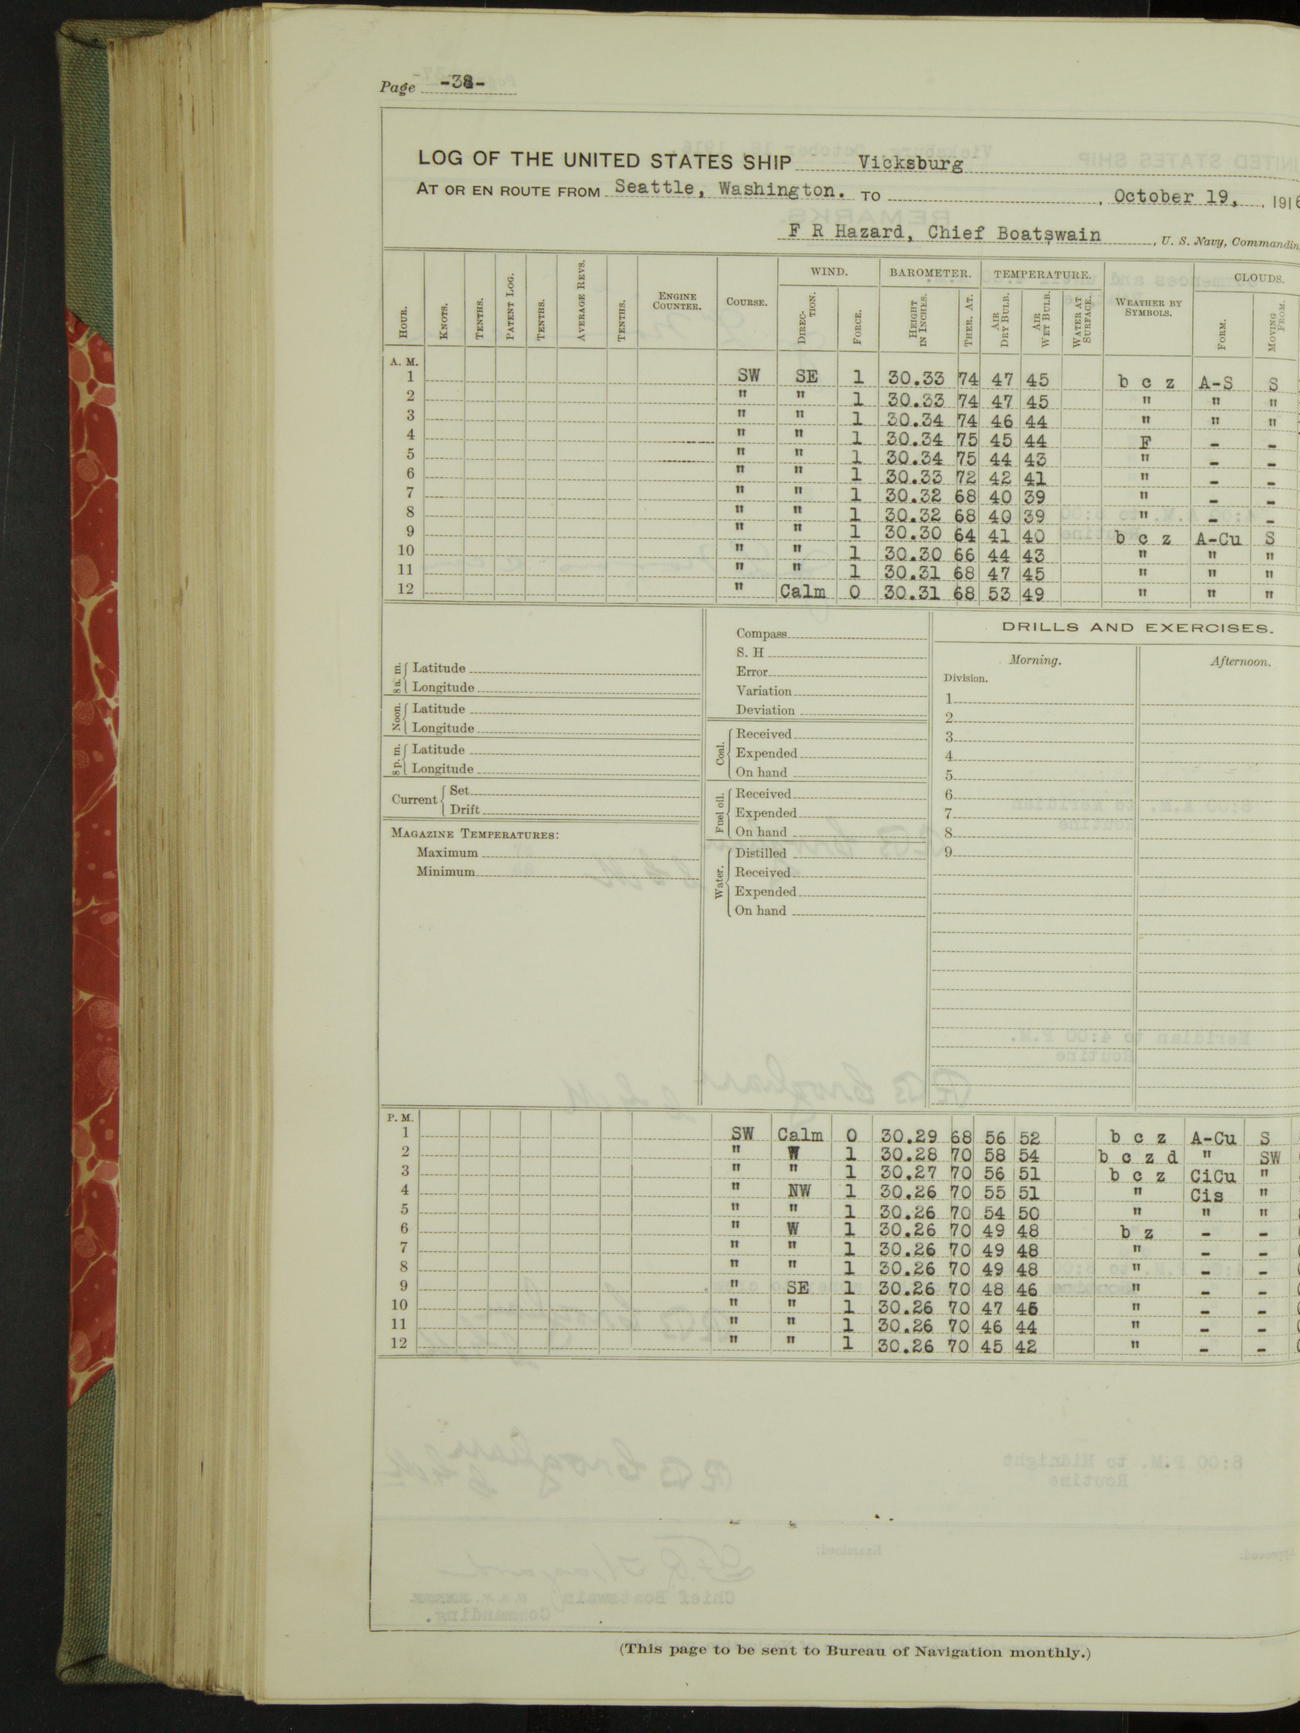 Page -38-
LOG OF THE UNITED STATES SHIP Vicksburg
AT OR EN ROUTE FROM Seattle, Washington. TO , October 19, , 1916
F R Hazard, Chief Boatswain , U. S. Navy, Commandin
HOUR. KNOTS. TENTHS. PATENT LOG. TENTHS. AVERAGE REVS. TENTHS. ENGINE COUNTER. COURSE. WIND. DIRECTION. FORCE. BAROMETER. HEIGHT IN INCHES. THER. AT. TEMPERATURE. AIR DRY BULB. AIR WET BULB. WATER AT SURFACE. WEATHER BY SYMBOLS. CLOUDS. FORM. MOVING FROM.
A. M.
1 SW SE 1 30.33 74 47 45 b c z A-S S
2 " " 1 30.33 74 47 45 " " "
3 " " 1 30.34 74 46 44 " " "
4 " " 1 30.34 75 45 44 F - -
5 " " 1 30.34 75 44 43 " - -
6 " " 1 30.33 72 42 41 " - -
7 " " 1 30.32 68 40 39 " - -
8 " " 1 30.32 68 40 39 " - -
9 " " 1 30.30 64 41 40 b c z A-Cu S
10 " " 1 30.30 66 44 43 " " "
11 " " 1 30.31 68 47 45 " " "
12 " Calm 0 30.31 68 53 49 " " "
8 a. m. Latitude
Longitude
Noon. Latitude
Longitude
8 p. m. Latitude
Longitude
Current Set
Drift
MAGAZINE TEMPERATURES:
Maximum
Minimum
Compass
S. H
Error
Variation
Deviation
Coal. Received
Expended
On hand
Fuel oil. Received
Expended
On hand
Water. Distilled
Received
Expended
On hand
DRILLS AND EXERCISES.
Morning. Afternoon.
Division.
1
2
3
4
5
6
7
8
9
P. M.
1 SW Calm 0 30.29 68 56 52 b c z A-Cu S
2 " W 1 30.28 70 58 54 b c z d " SW
3 " " 1 30.27 70 56 51 b c z CiCu "
4 " NW 1 30.26 70 55 51 " Cis "
5 " " 1 30.26 70 54 50 " " "
6 " W 1 30.26 70 49 48 b z - -
7 " " 1 30.26 70 49 48 " - -
8 " " 1 30.26 70 49 48 " - -
9 " SE 1 30.26 70 48 46 " - -
10 " " 1 30.26 70 47 45 " - -
11 " " 1 30.26 70 46 44 " - -
12 " " 1 30.26 70 45 42 " - -
(This page to be sent to Bureau of Navigation monthly.)